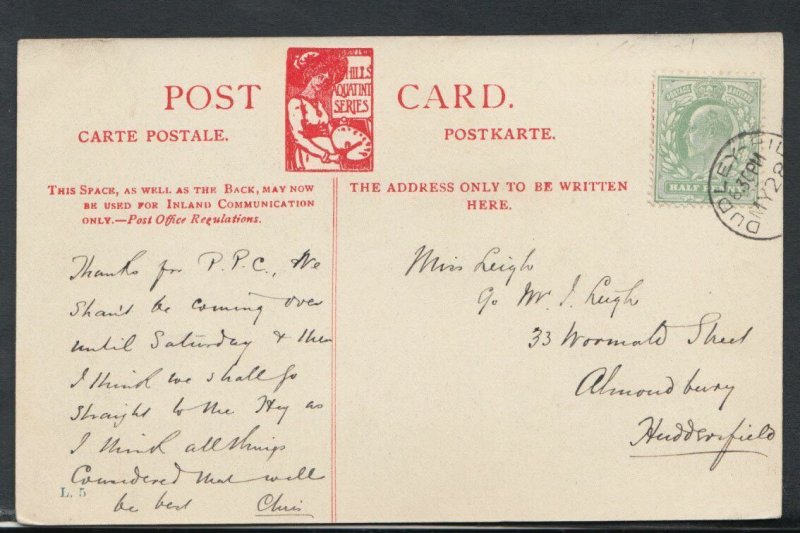 POST CARD.
HILLS
AQUATINT
SERIES
CARTE POSTALE. POSTKARTE.
THIS SPACE, AS WELL AS THE BACK, MAY NOW
BE USED FOR INLAND COMMUNICATION
ONLY.—Post Office Regulations.
THE ADDRESS ONLY TO BE WRITTEN
HERE.
HALF PENNY
DUDLEY
MY 28
Thanks for P.P.C., We
Shan't be coming over
until Saturday & then
I think we shall go
straight to the Hey as
I think all things
Considered that will
be best Chris
L. 5
Miss Leigh
c/o Mr. J. Leigh
33 Wormald Street
Almondbury
Huddersfield